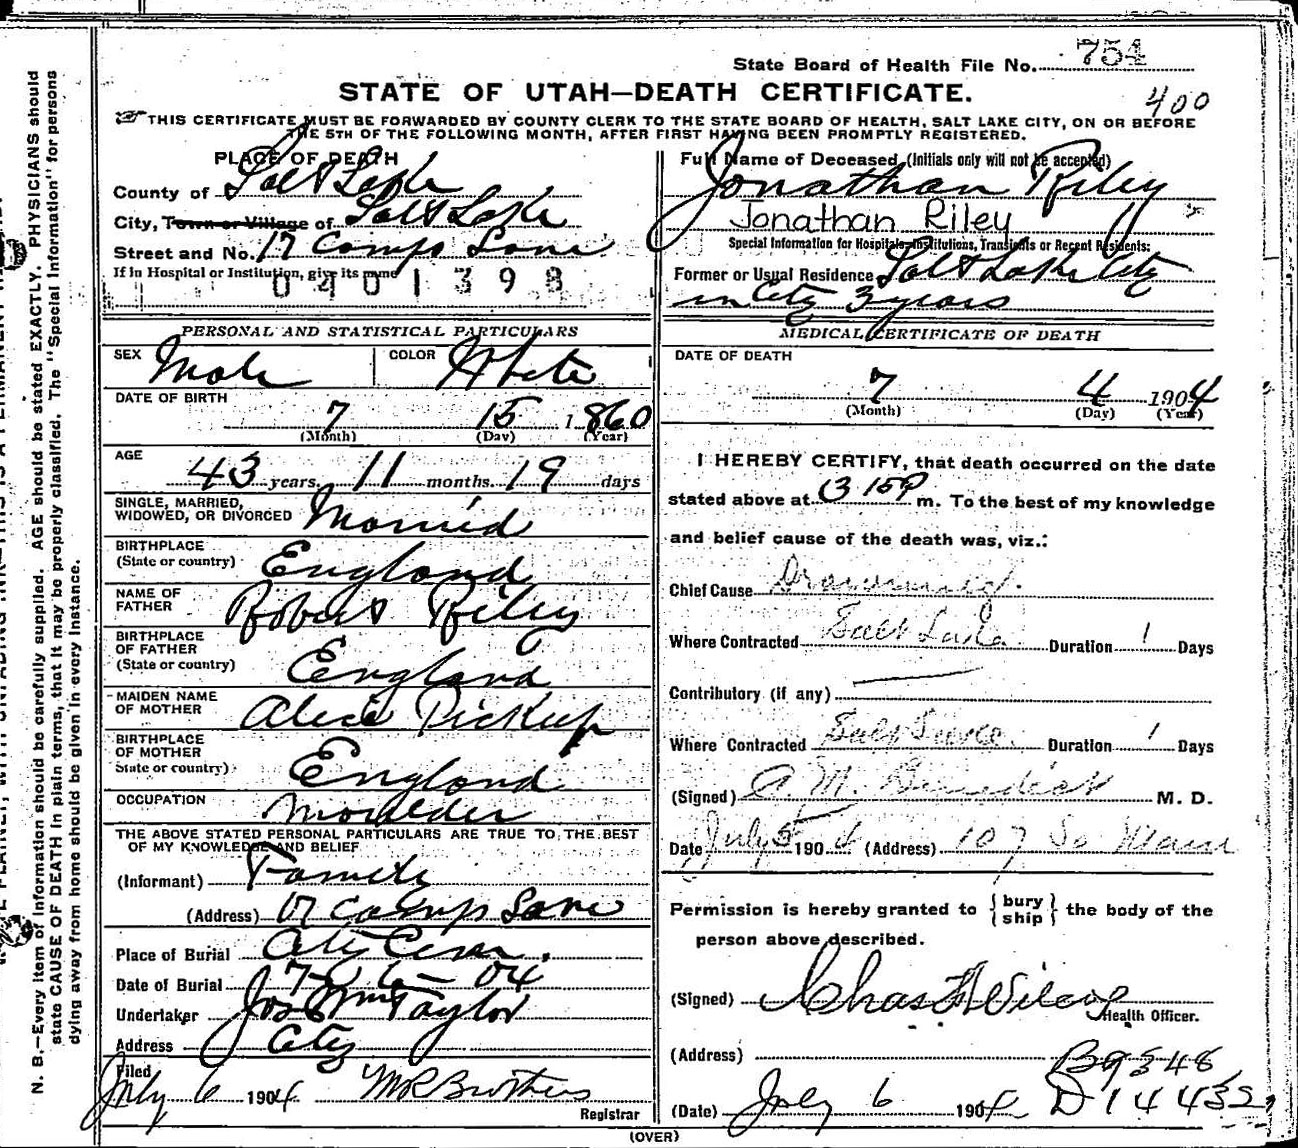 State Board of Health File No. 754
STATE OF UTAH—DEATH CERTIFICATE.
400
THIS CERTIFICATE MUST BE FORWARDED BY COUNTY CLERK TO THE STATE BOARD OF HEALTH, SALT LAKE CITY, ON OR BEFORE
THE 5TH OF THE FOLLOWING MONTH, AFTER FIRST HAVING BEEN PROMPTLY REGISTERED.
PLACE OF DEATH
County of Salt Lake
City, Town or Village of Salt Lake
Street and No. 17 Camps Lane
If in Hospital or Institution, give its name
0401398
Full Name of Deceased (Initials only will not be accepted)
Jonathan Riley
Jonathan Riley
Special Information for Hospitals, Institutions, Transients or Recent Residents:
Former or Usual Residence Salt Lake City
in City 3 years
PERSONAL AND STATISTICAL PARTICULARS
SEX Male COLOR White
DATE OF BIRTH
7 15 1860
(Month) (Day) (Year)
AGE
43 years 11 months 19 days
SINGLE, MARRIED,
WIDOWED, OR DIVORCED Married
BIRTHPLACE
(State or country) England
NAME OF
FATHER Robert Riley
BIRTHPLACE
OF FATHER
(State or country) England
MAIDEN NAME
OF MOTHER Alice Pickup
BIRTHPLACE
OF MOTHER
State or country) England
OCCUPATION Moulder
THE ABOVE STATED PERSONAL PARTICULARS ARE TRUE TO THE BEST
OF MY KNOWLEDGE AND BELIEF
(Informant) Family
(Address) 17 Camps Lane
Place of Burial City Cem.
Date of Burial 7-6-04
Undertaker Jos Wm Taylor
Address City
Filed
July 6 1904
Registrar
MEDICAL CERTIFICATE OF DEATH
DATE OF DEATH
7 4 1904
(Month) (Day) (Year)
I HEREBY CERTIFY, that death occurred on the date
stated above at 3 15 P m. To the best of my knowledge
and belief cause of the death was, viz.:
Chief Cause Drowned.
Where Contracted Salt Lake Duration 1 Days
Contributory (if any) —
Where Contracted Salt Lake Duration 1 Days
(Signed) A. M. Benedict M. D.
Date July 5 1904 (Address) 107 So Main
Permission is hereby granted to {bury ship} the body of the
person above described.
(Signed) Chas Wilcox
Health Officer.
(Address)
B9348
(Date) July 6 1904 D14432
(OVER)
N. B.—Every item of information should be carefully supplied. AGE should be stated EXACTLY. PHYSICIANS should
state CAUSE OF DEATH in plain terms, that it may be properly classified. The "Special Information" for persons
dying away from home should be given in every instance.